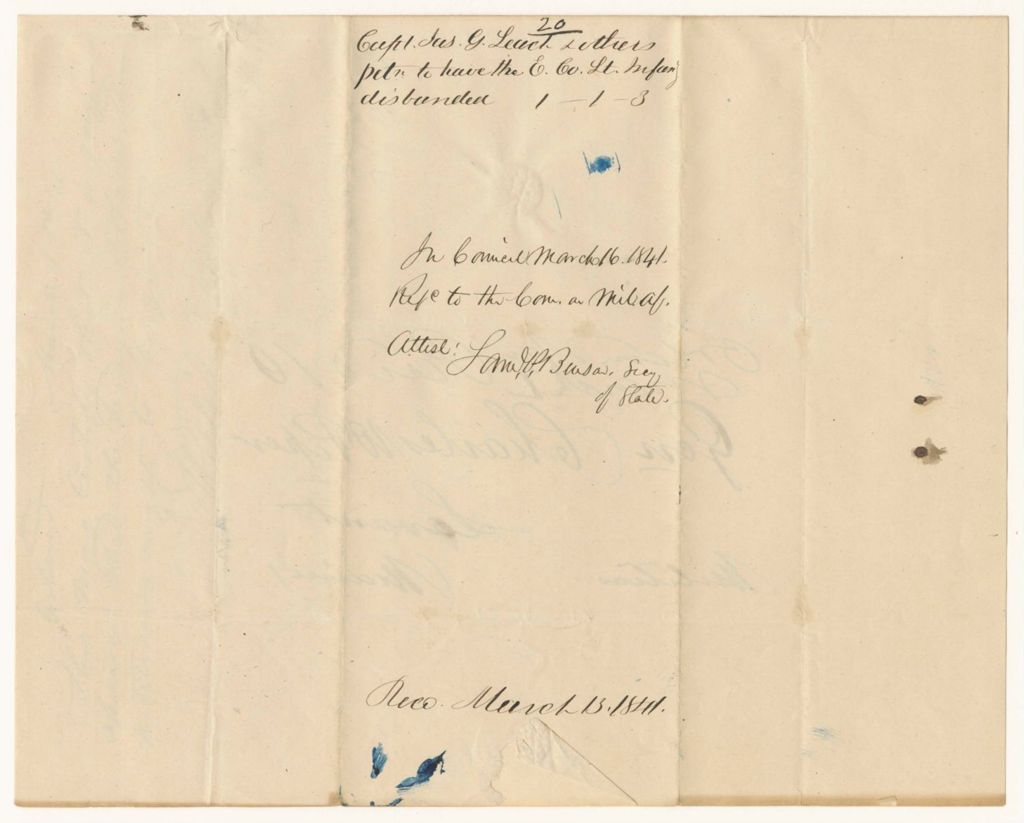 20
Capt. Jas. G. Leach & others
petn to have the E. Co. Lt. Infan'y
disbanded 1 – 1 – 3
In Council March 16. 1841.
Refd to the Com. on Mil. af.
Attest: Saml. P. Benson, Secy
of State.
Recd. March 13. 1841.
Gen Charles